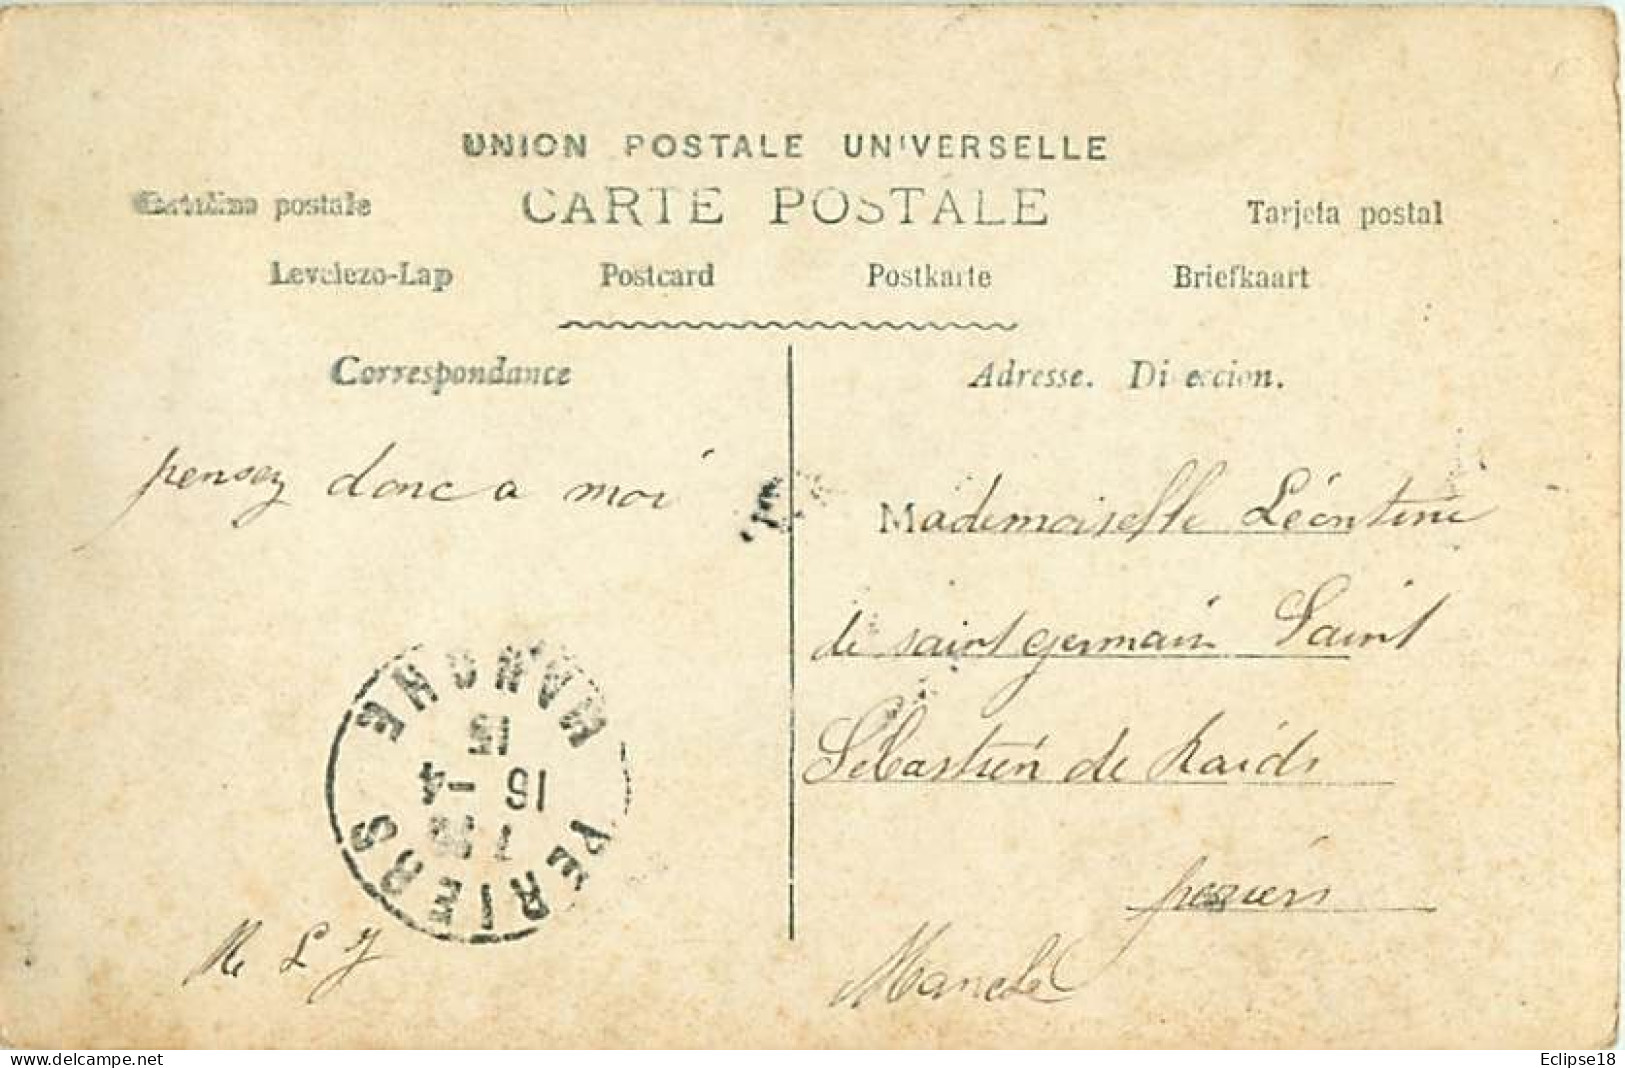 UNION POSTALE UN'VERSELLE
CARTE POSTALE
postale
Tarjeta postal
Levelezo-Lap Postcard Postkarte Briefkaart
Correspondance
Adresse. Di eccion.
pensez donc a moi
Mademoiselle Léontine
de saint germain Saint
Sébastien de Raids
periers
Manche
L J
PERIERS MANCHE
16 -4
Eclipse18
www.delcampe.net